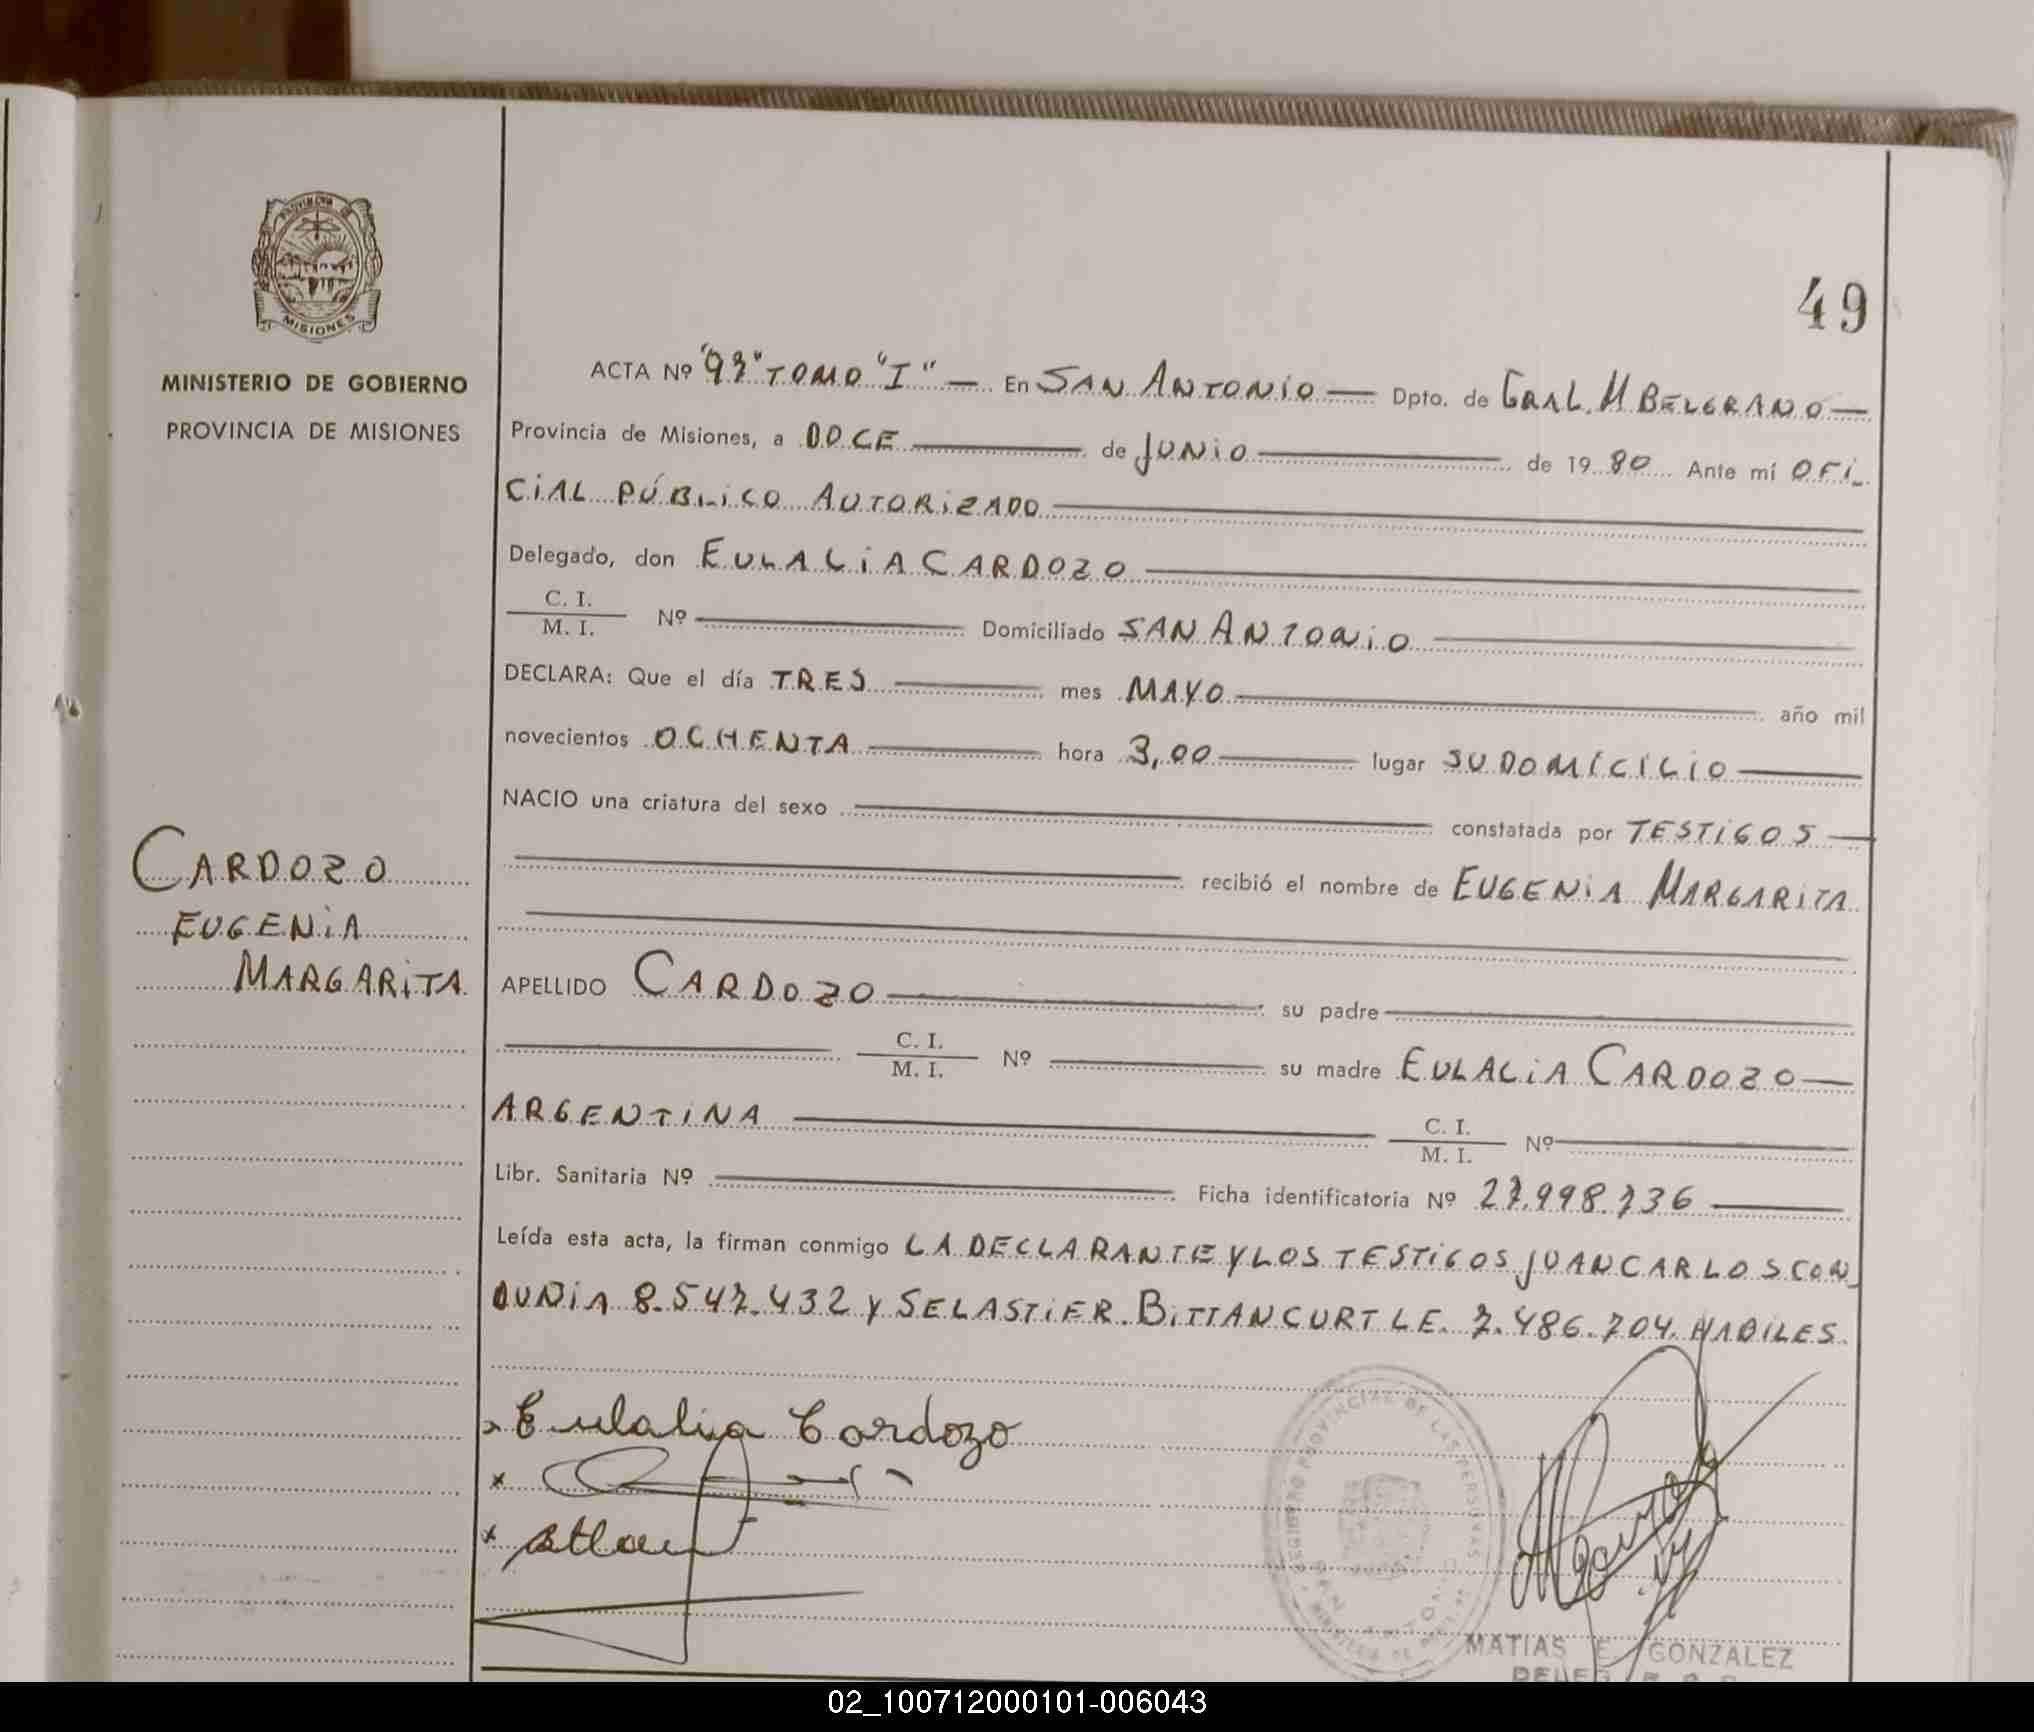 49
MISIONES
MINISTERIO DE GOBIERNO
PROVINCIA DE MISIONES
CARDOZO
EUGENiA
MARGARiTA
ACTA Nº "97" TOMO "I" — En SAN ANTONiO — Dpto. de GRAL. M BELGRANO —
Provincia de Misiones, a DOCE — de JUNiO — de 1980 Ante mí OFi_
CiAL PÚBLiCO AUTORiZADO —
Delegado, don EULALiA CARDOZO —
C. I.
M. I. Nº — Domiciliado SAN ANTONiO —
DECLARA: Que el día TRES — mes MAYO — año mil
novecientos OCHENTA — hora 3,00 — lugar SU DOMICILIO —
NACIO una criatura del sexo — constatada por TESTiGOS —
— recibió el nombre de EUGENiA MARGARiTA
APELLIDO CARDOZO — su padre —
— C. I.
M. I. Nº — su madre EULALiA CARDOZO —
ARGENTiNA — C. I.
M. I. Nº —
Libr. Sanitaria Nº — Ficha identificatoria Nº 27.998.736 —
Leída esta acta, la firman conmigo LA DECLARANTE Y LOS TESTiGOS JUAN CARLOS CON_
DUNiA 8.547.432 Y SELASTiER BiTTANCURT LE. 7.486.704. HABILES.
x Eulalia Cardozo
x
x
REGISTRO PROVINCIAL DE LAS PERSONAS
MATIAS E. GONZALEZ
02_100712000101-006043